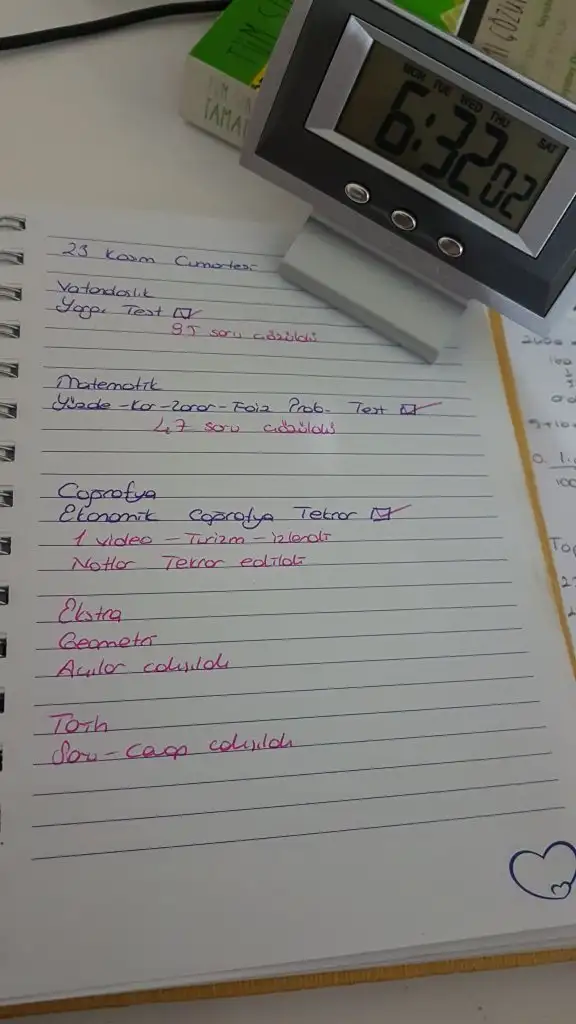 TÜM
TAMA
MON TUE WED THU SAT
6:32 02
23 Kasım Cumartesi
Vatandaslık
Yargı Test
95 soru cözüldü
Matematik
Yüzde-Kar-Zarar-Faiz Prob. Test
47 soru cözüldü
Cografya
Ekonomik Cografya Tekrar
1 video - Turizm - izlendi
Notlar Tekrar edildi
Ekstra
Geometri
Acılar calısıldı
Tarih
Soru - Cevap calısıldı
100